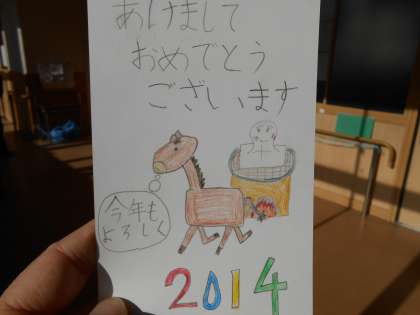 あけまして
おめでとう
ございます
今年も
よろしく
2014